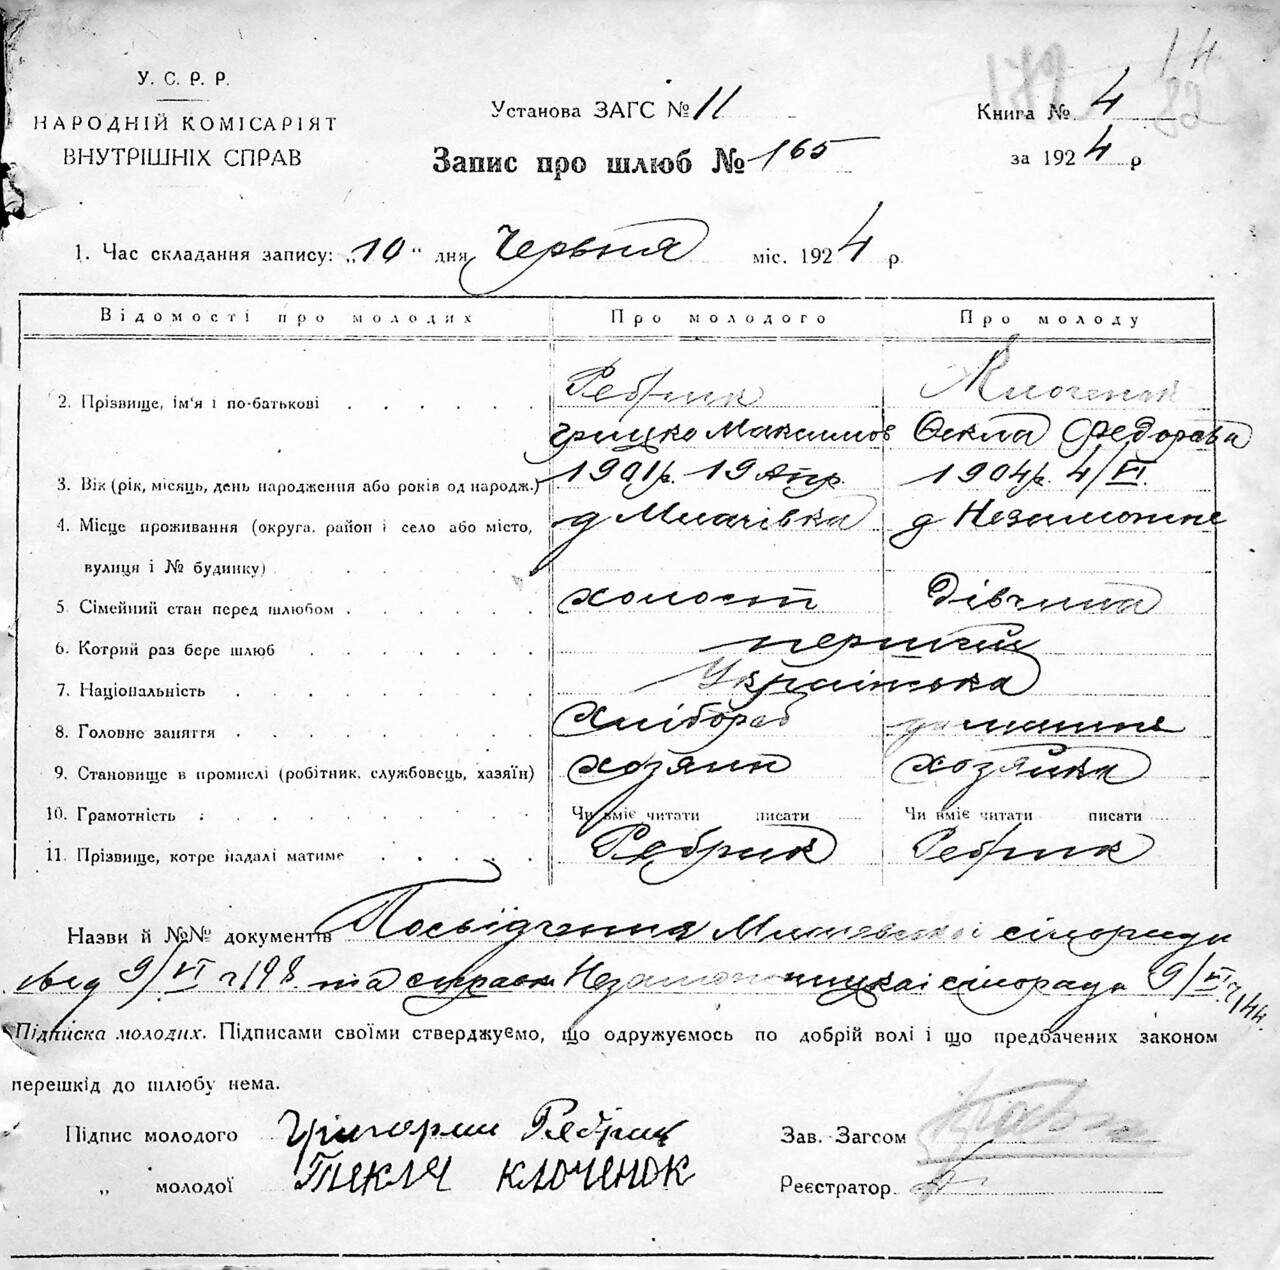 14
172
82
У. С. Р. Р.
НАРОДНІЙ КОМІСАРІЯТ
ВНУТРІШНІХ СПРАВ
Установа ЗАГС № 11
Запис про шлюб № 165
Книга № 4
за 1924 р
1. Час складання запису: „10" дня Червня міс. 1924 р.
Відомості про молодих Про молодого Про молоду
2. Прізвище, ім'я і по-батькові Ребрик Клоченок
Грицко Максимов Фекла Федорова
3. Вік (рік, місяць, день народження або років од народж.) 1901 р. 19 Апр. 1904 р. 4/VI.
4. Місце проживання (округа, район і село або місто, д Милачівка д Незаможне
вулиця і № будинку)
5. Сімейний стан перед шлюбом холост дівчина
6. Котрий раз бере шлюб перший
7. Національність Українська
8. Головне заняття хлібороб домашнє
9. Становище в промислі (робітник, службовець, хазяїн) хозяин хозяйка
10. Грамотність Чи вміє читати писати Чи вміє читати писати
11. Прізвище, котре надалі матиме Ребрик Ребрик
Назви й №№ документів Посвідчення сільради
від 9/VI ч 198 та сільрада 9/VI ч 144.
Підписка молодих. Підписами своїми стверджуємо, що одружуємось по добрій волі і що предбачених законом
перешкід до шлюбу нема.
Підпис молодого Григорий Ребрик Зав. Загсом
„ молодої Текля Клоченок Реєстратор